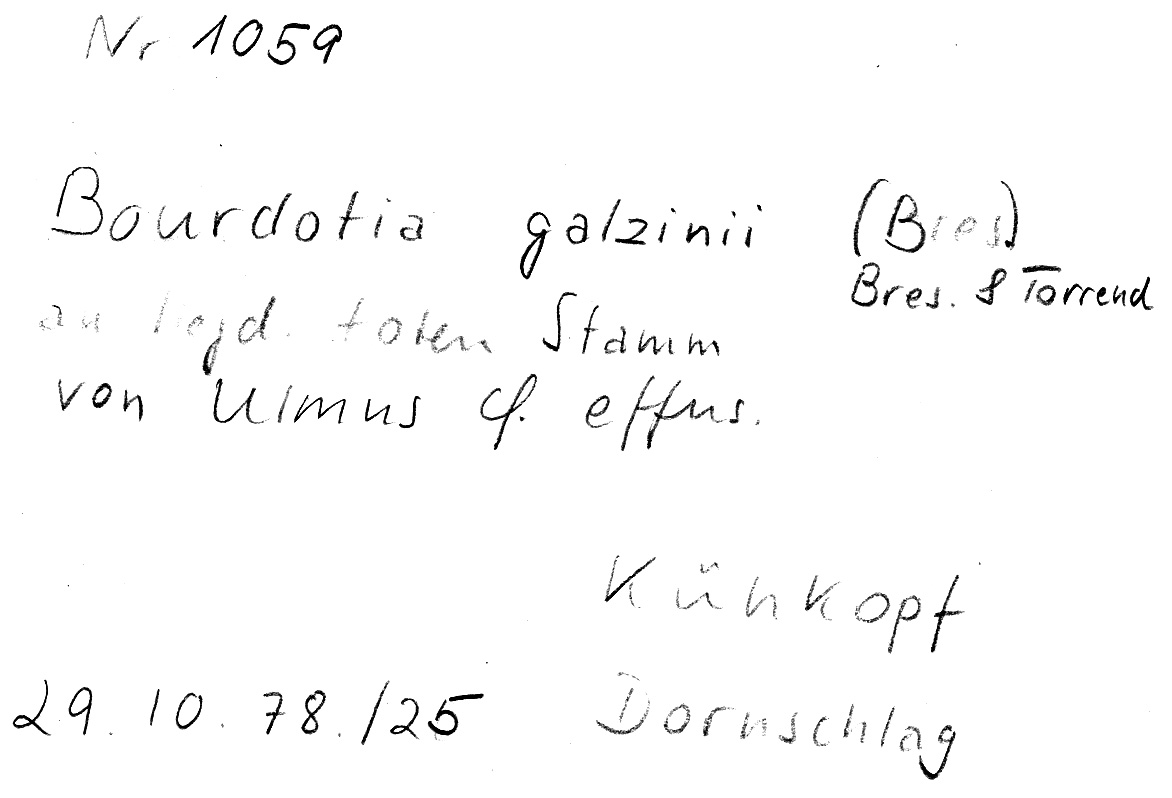 Nr 1059
Bourdotia galzinii (Bres.)
Bres. & Torrend
an liegd. toten Stamm
von Ulmus cf. effus.
Kühkopf
29.10.78./25 Dornschlag